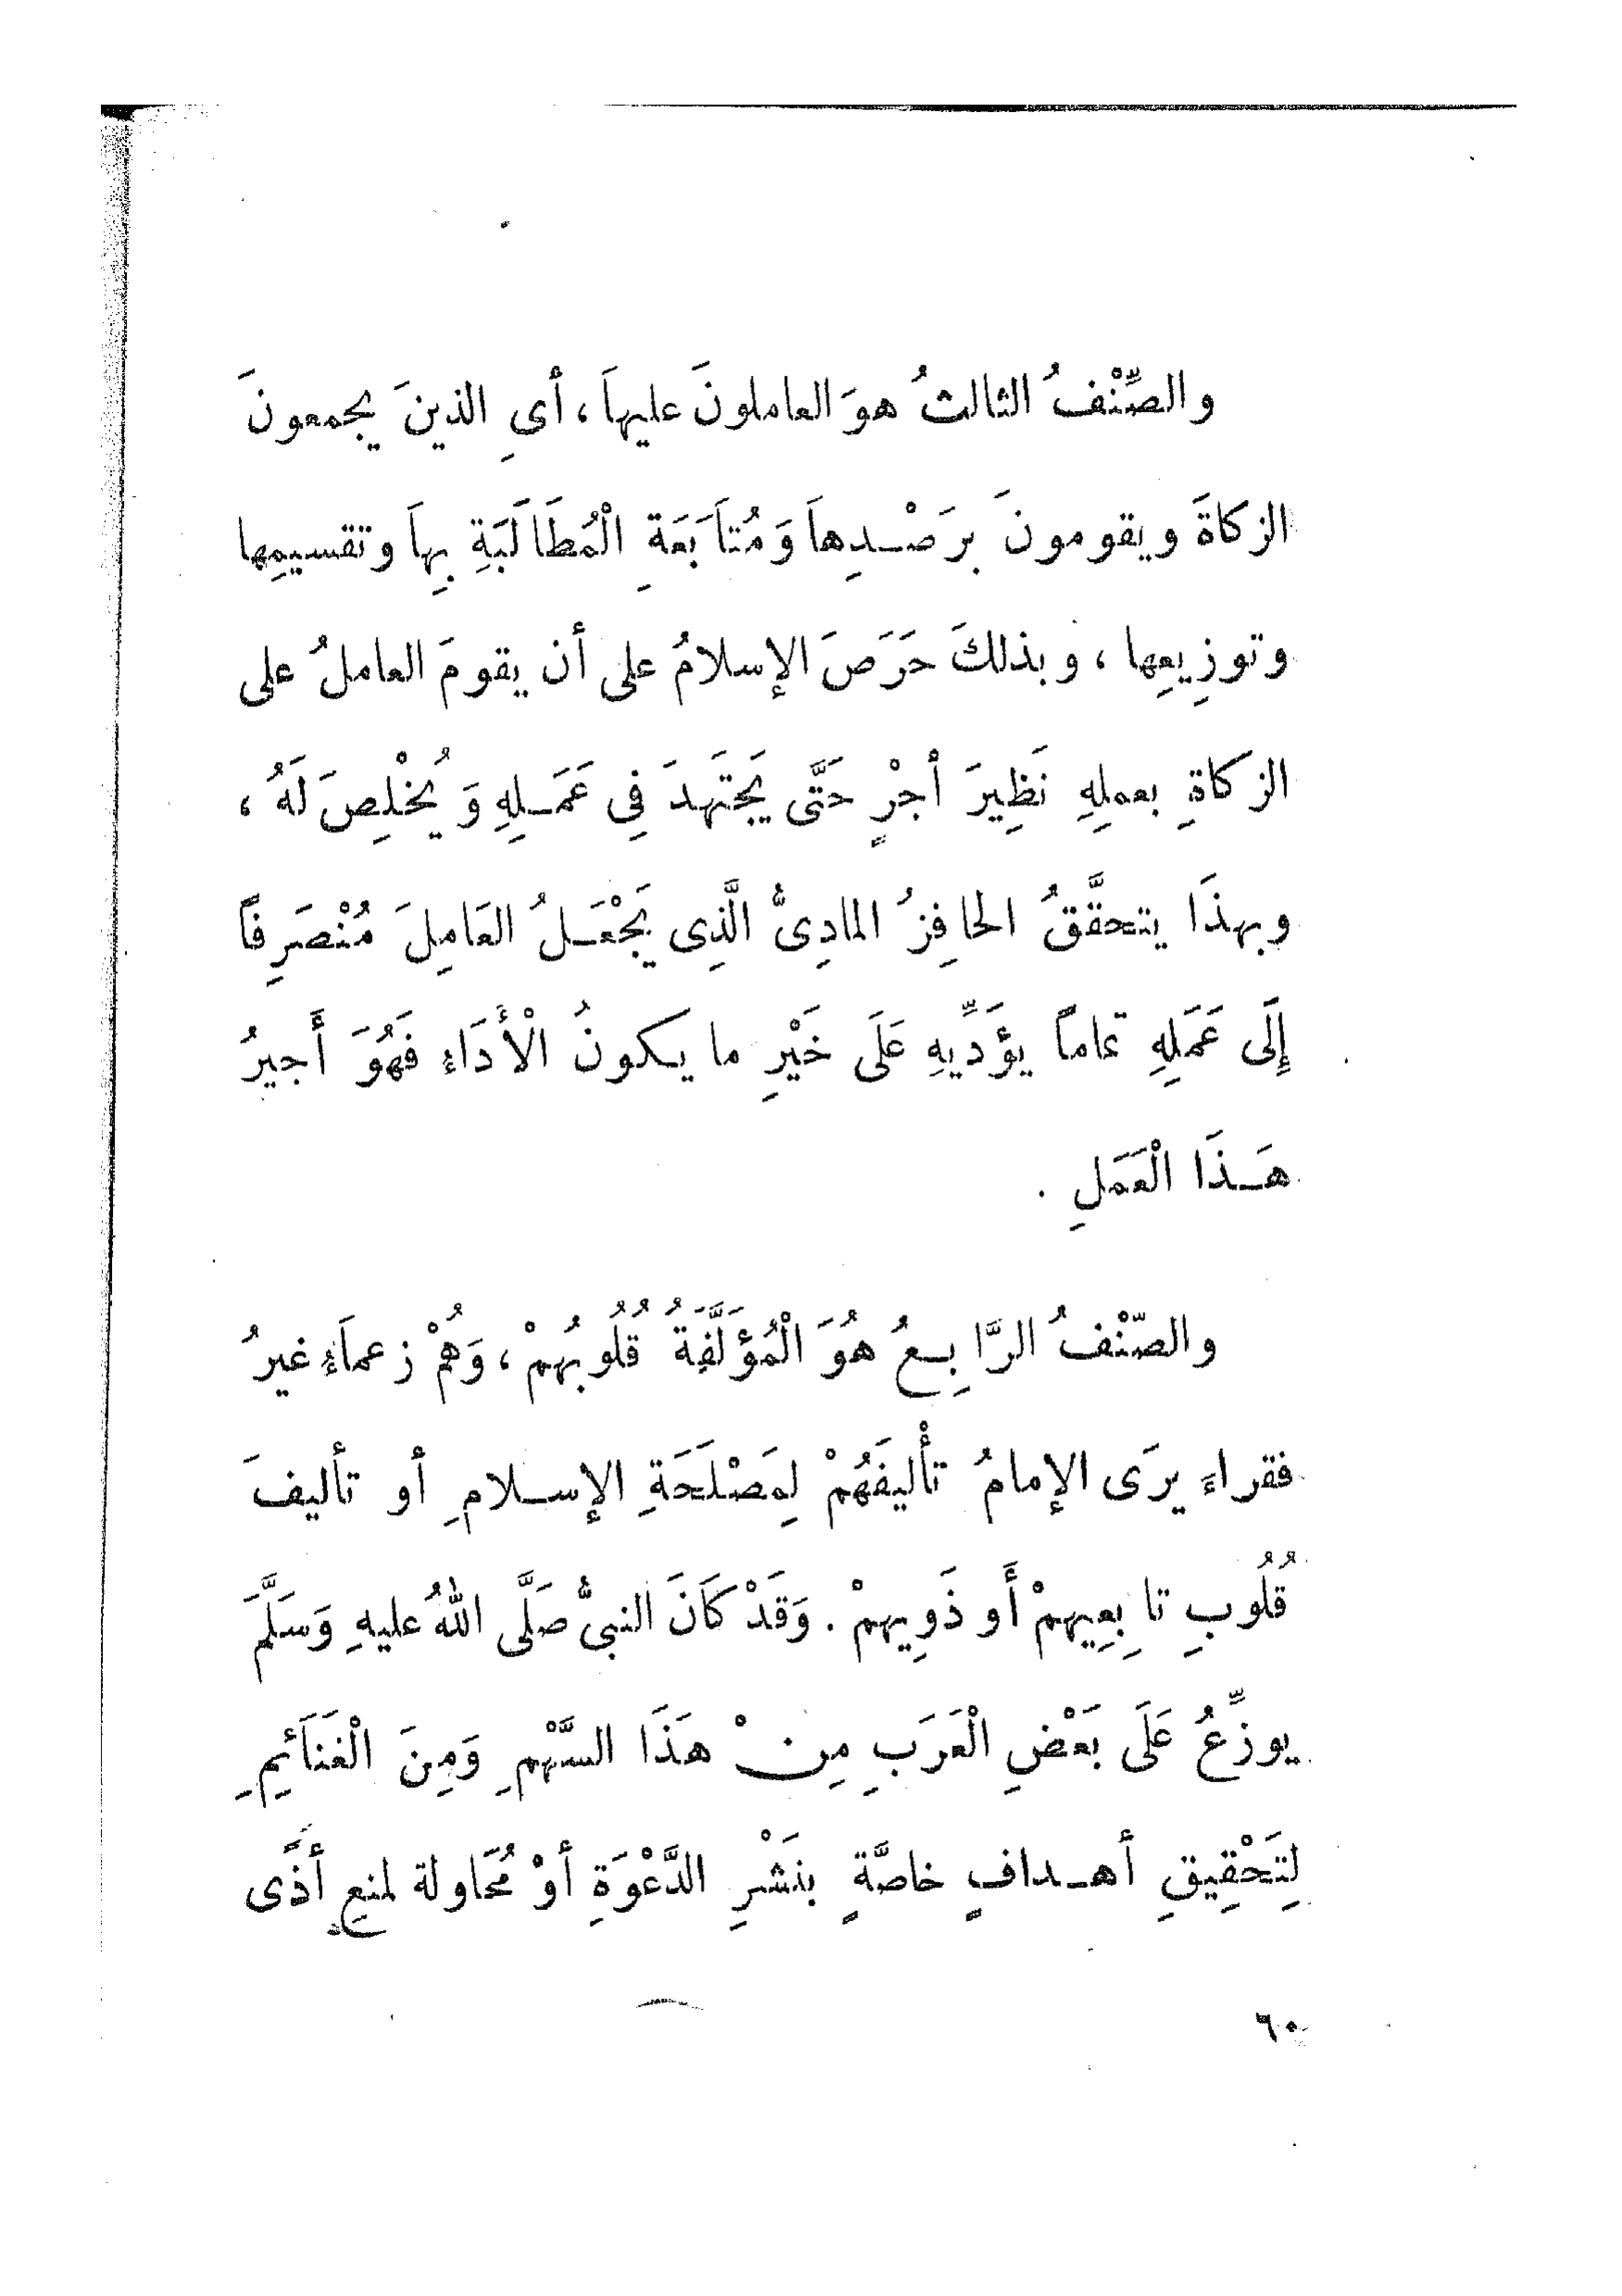 والصِّنْفُ الثالثُ هوَ العاملونَ عليهاَ ، أىِ الذينَ يجمعونَ
الزكاةَ ويقومونَ برَصْـدِهاَ وَمُتاَبَعَةِ الْمُطَالَبَةِ بِهاَ وتقسيمِها
وتوزِيعِها ، وبذلكَ حَرَصَ الإسلامُ على أن يقومَ العاملُ على
الزكاةِ بعملِهِ نَظِيرَ أجْرٍ حَتَّى يَجتَهدَ فِى عَمَـلِهِ وَيُخْلِصَ لَهُ ،
وبهذَا يتحقَّقُ الحافِزُ المادِىُّ الَّذِى يَجْعَـلُ العَامِلَ مُنْصَرِفاً
إِلَى عَمَلِهِ تماماً يؤَدِّيهِ عَلَى خَيْرِ ما يكونُ الْأَدَاءِ فَهُوَ أَجيرُ
هَـذَا الْعَمَلِ .
والصّنْفُ الرَّابِـعُ هُوَ الْمُؤَلَّفَةُ قُلُوبُهمْ ، وَهُمْ زعماَءُ غيرُ
فقراءَ يرَى الإمامُ تأْليفَهُمْ لِمَصْلَحَةِ الإسـلامِ أو تأليفَ
قُلُوبِ تابِعِيهمْ أَو ذَوِيهمْ . وَقَدْ كَانَ النبىُّ صَلَّى اللهُ عليهِ وَسَلَّمَ
يوزِّعُ عَلَى بَعْضِ الْعَرَبِ مِنْ هَذَا السَّهْمِ وَمِنَ الْغَنَائِمِ
لِتَحْقِيقِ أهـدافٍ خاصَّةٍ بنَشْرِ الدَّعْوَةِ أوْ مُحَاولة لمنعِ أذًى
٦٠